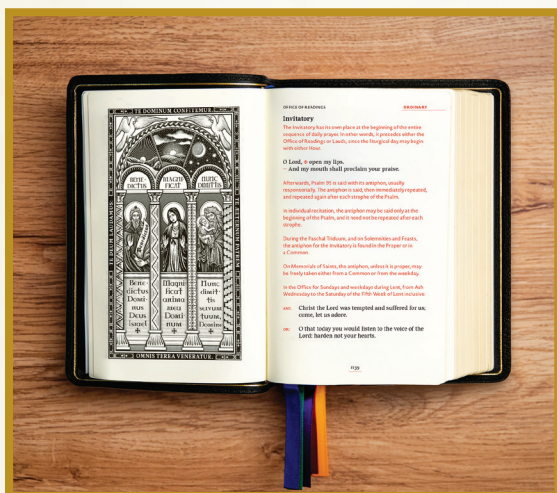 TE DOMINUM CONFITEMUR.
TE DEUM LAUDAMUS.
BENE-
DICTUS
MAGNI
FICAT
NUNC
DIMITTIS
Bene-
dictus
Domi-
nus
Deus
Israel
Magni
ficat
anima
mea
Domi-
num
Nunc
dimit-
tis
servum
tuum,
Domine
OMNIS TERRA VENERATUR.
OFFICE OF READINGS
ORDINARY
Invitatory
The Invitatory has its own place at the beginning of the entire
sequence of daily prayer. In other words, it precedes either the
Office of Readings or Lauds, since the liturgical day may begin
with either Hour.
O Lord, ✠ open my lips.
– And my mouth shall proclaim your praise.
Afterwards, Psalm 95 is said with its antiphon, usually
responsorially. The antiphon is said, then immediately repeated,
and repeated again after each strophe of the Psalm.
In individual recitation, the antiphon may be said only at the
beginning of the Psalm, and it need not be repeated after each
strophe.
During the Paschal Triduum, and on Solemnities and Feasts,
the antiphon for the Invitatory is found in the Proper or in
a Common.
On Memorials of Saints, the antiphon, unless it is proper, may
be freely taken either from a Common or from the weekday.
In the Office for Sundays and weekdays during Lent, from Ash
Wednesday to the Saturday of the Fifth Week of Lent inclusive
ANT. Christ the Lord was tempted and suffered for us;
come, let us adore.
OR: O that today you would listen to the voice of the
Lord: harden not your hearts.
1139